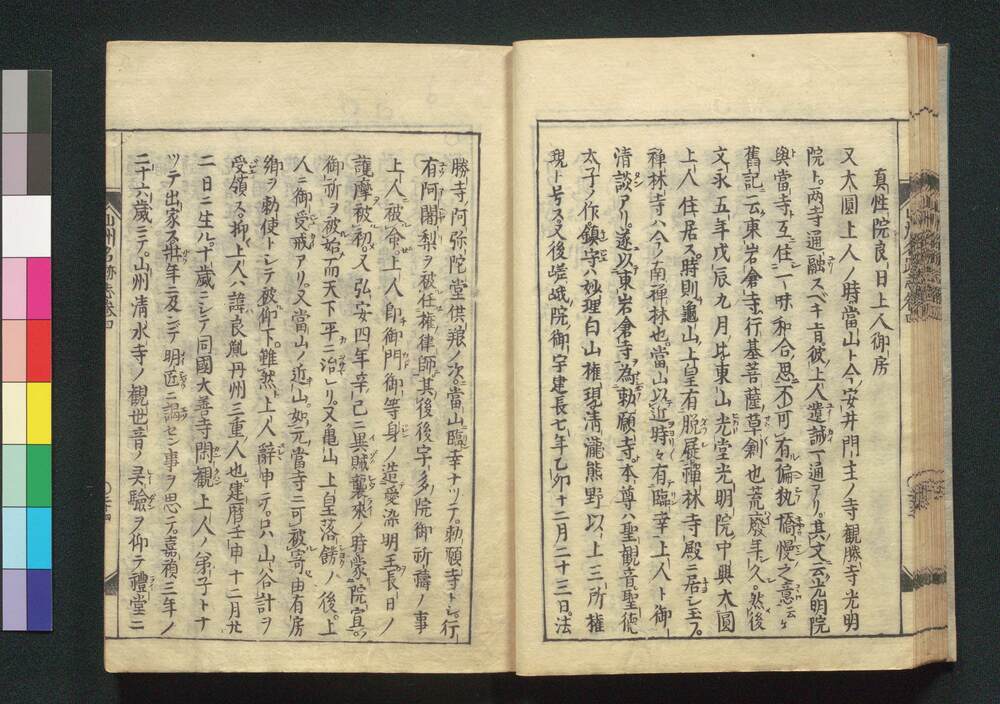 真性院良日上人御房
又大圓上人ノ時當山ト今ノ安井門主ノ寺観勝寺光明
院ト両寺通融スベキ旨彼上人遺誡一通アリ其文云光明院
與當寺互住一味和合思不可有偏執憍慢之意云々
舊記ニ云東岩倉寺行基菩薩草創也荒廢年久然後
文永五年戊辰九月比東山光堂光明院中興大圓
上人住居ス時則龜山上皇有脱屣禪林寺殿ニ居シ玉フ
禅林寺ハ今ノ南禅林也當山以近時々有臨幸上人ト御
清談アリ遂以東岩倉寺為勅願寺本尊ハ聖観音聖徳
太子ノ作鎮守ハ妙理白山権現清瀧熊野以上三所権
現ト号ス又後嵯峨院御宇建長七年乙卯十二月二十三日法
勝寺ノ阿弥陀堂供養ノ次當山臨幸ナツテ勅願寺トシ行
有阿闍梨ヲ被任権律師其後後宇多院御祈禱ノ事
上人被命上人即御門御等身ノ造愛染明王長日ノ
護摩被初又弘安四年辛巳異賊襲來ノ時蒙院宣
御祈ヲ被始而天下平ニ治レリ又亀山上皇落餝ノ後上
人ニ御受戒アリ又當山ノ近山如元當寺ニ可被寄由有房
卿ヲ勅使トシテ被仰下雖然上人辭申テ只山谷計ヲ
受領ス抑上人ハ諱良胤丹州三重人也建暦壬申十二月廿
二日ニ生ル十歳ニシテ同國大善寺閑観上人ノ弟子トナ
ツテ出家ス壮年ニ及ンデ明匠ニ謁セン事ヲ思テ嘉禎三年ノ
二十六歳ニテ山州清水寺ノ観世音ノ灵驗ヲ仰テ禮堂ニ
山州名跡志巻四